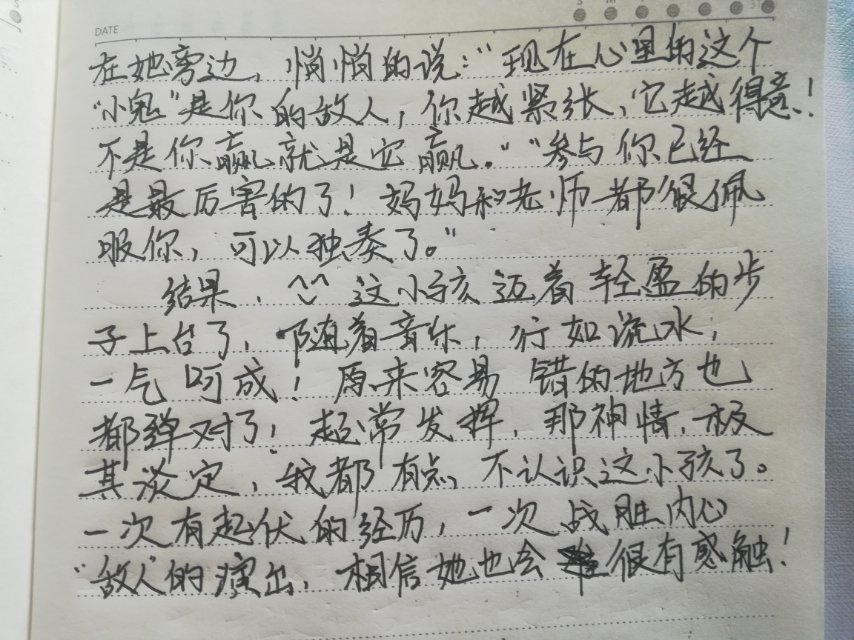 DATE
在她旁边，悄悄的说：“现在心里的这个
“小鬼”是你的敌人，你越紧张，它越得意！
不是你赢就是它赢。”“参与你已经
是最厉害的了！妈妈和老师都很佩
服你，可以独奏了。”
结果，^^ 这小孩迈着轻盈的步
子上台了，随着音乐，行如流水，
一气呵成！原来容易错的地方也
都弹对了！超常发挥，那神情，极
其淡定，我都有点不认识这小孩了。
一次有起伏的经历，一次战胜内心
“敌人”的演出，相信她也会很有感触！